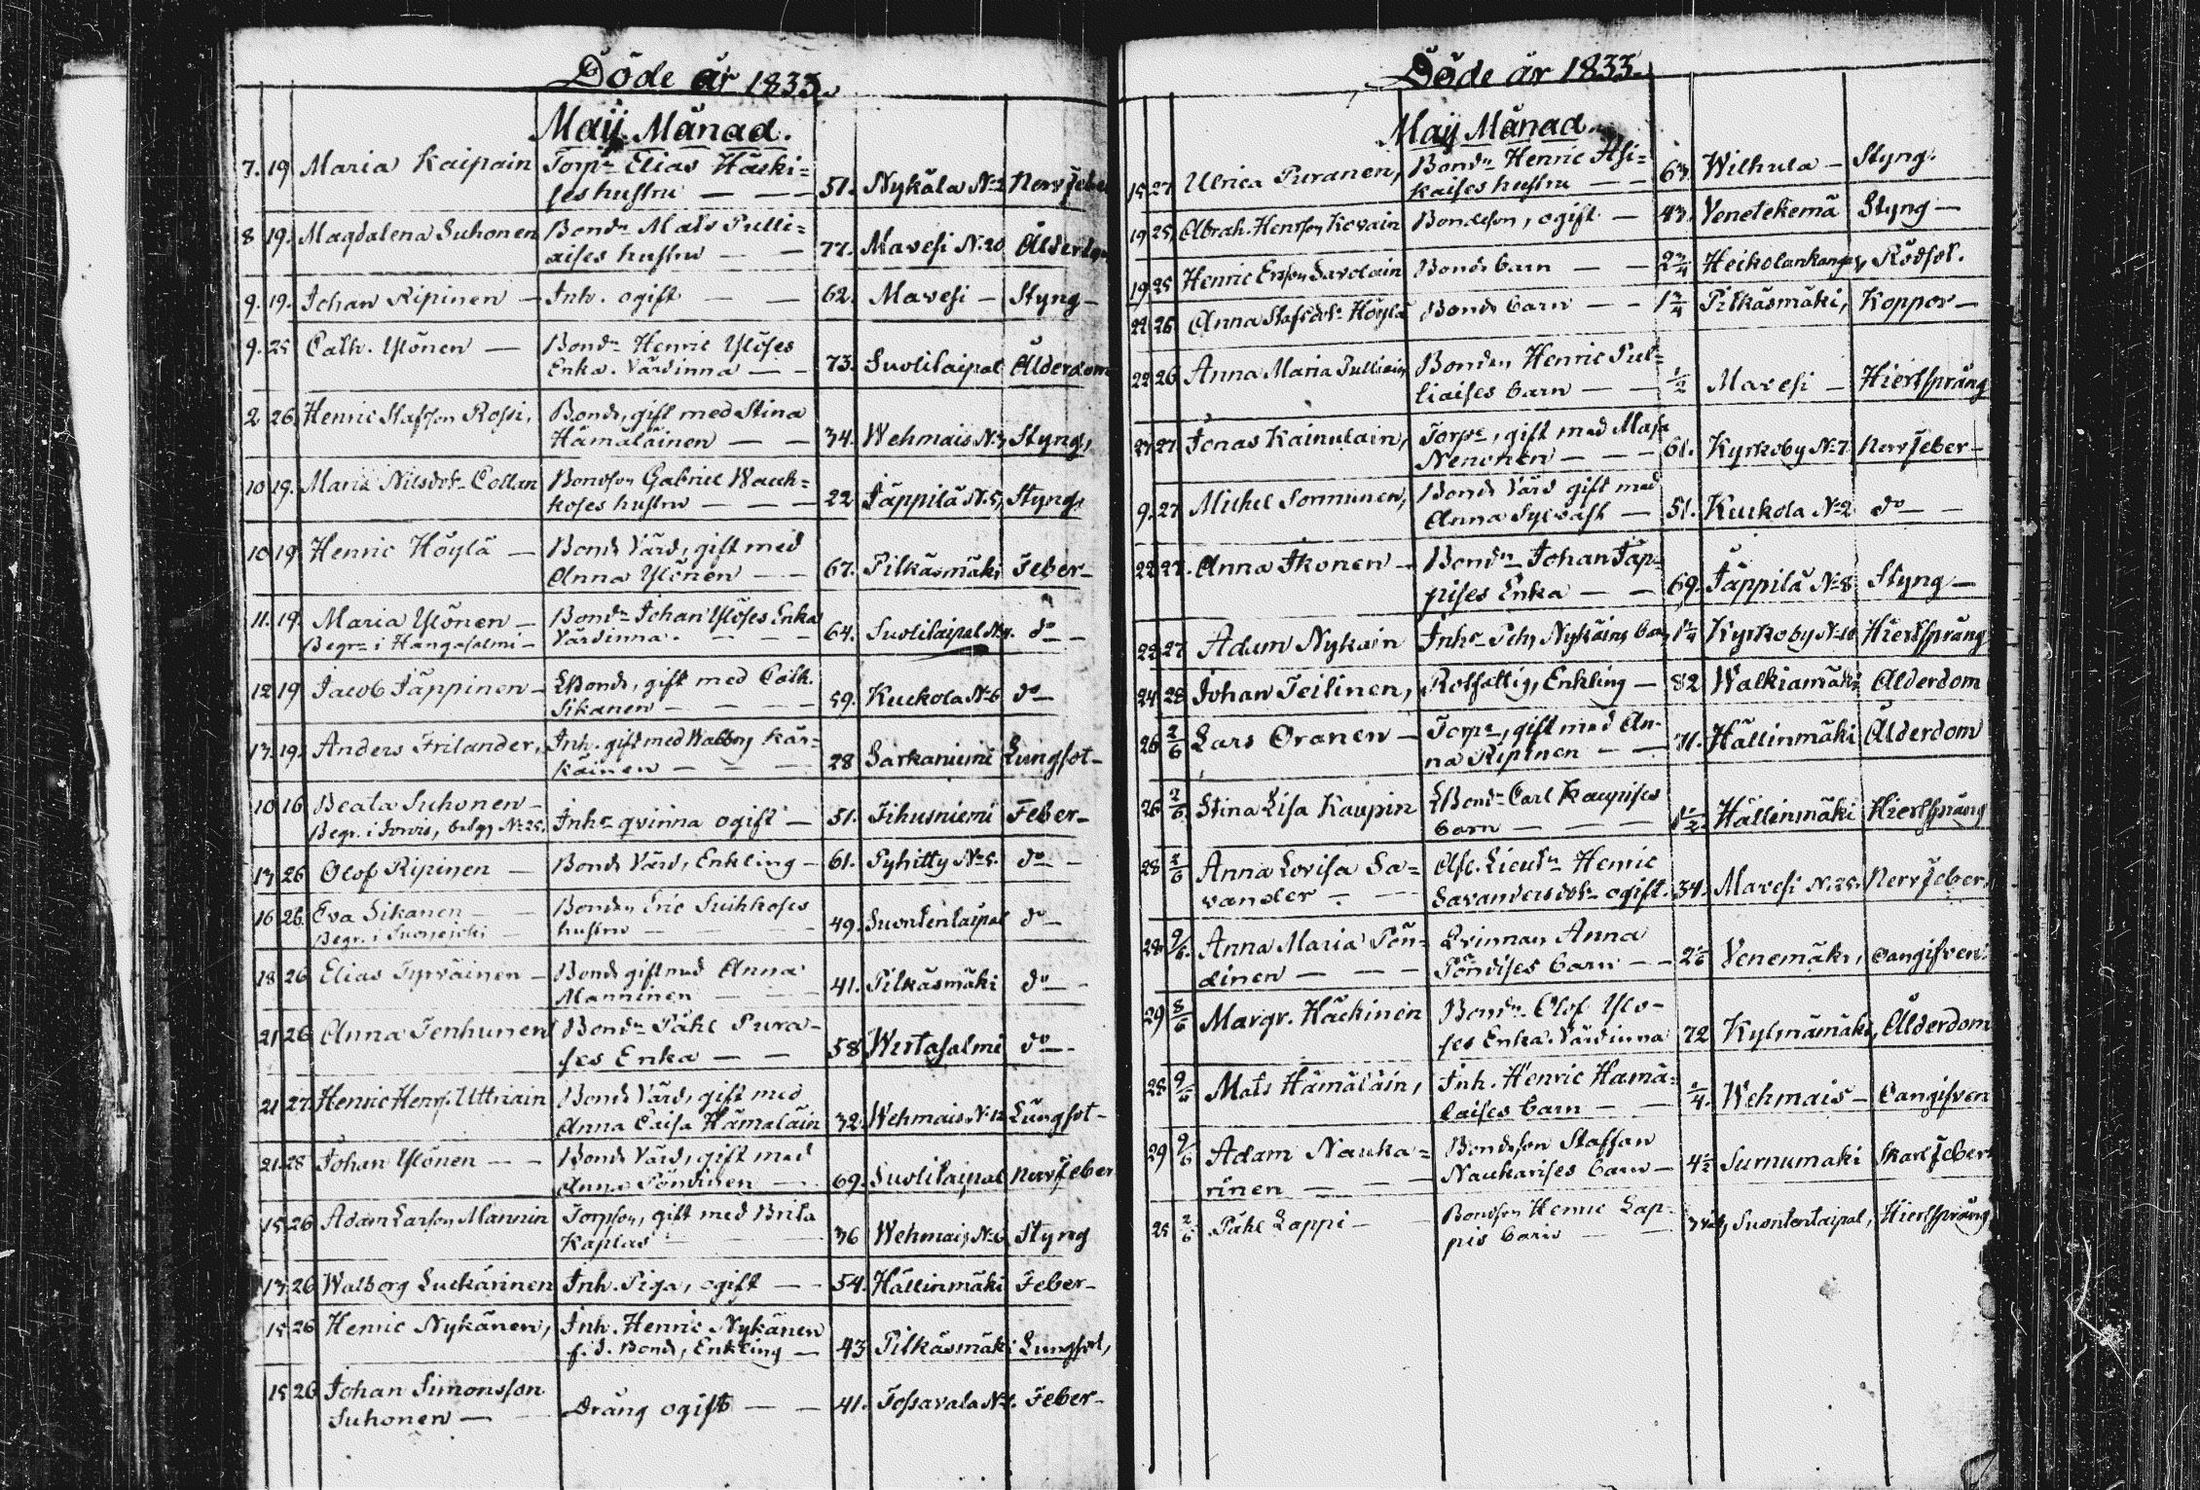 Döde år 1833.
Maij Månad.
7. 19 Maria Kaipain Torpr Elias Häski=
ses hustru — — 51. Nykälä No 2 Nervfeber
8 19. Magdalena Suhonen Bondn Mats Pulli=
aises hustru — — 77. Mavesi No 20 Ålderdom
9. 19. Johan Ripinen — Inh. ogift — — 62. Mavesi — Styng —
9. 25 Cath. Ylönen — Bondn Henric Ylöses
Enka. Värdinna — — 73. Suolilaipal Ålderdom
2 26. Henric Stafsson Rossi, Bonde, gift med Stina
Hämäläinen — — 34. Wehmais No 3 Styng,
10 19. Maria Nilsdotr Collan Bondson Gabriel Wauh=
koses hustru — — 22. Jäppilä No 5, Styng,
10 19. Henric Höylä — Bonde Värd, gift med
Anna Ylönen — — 67. Pilkäsmäki Feber —
11. 19. Maria Ylönen — Bondn Johan Ylöses Enka
Begrn i Hangasalmi — Värdinna. — — 64. Suolilaipal do —
12 19 Jacob Jäppinen — LBonde, gift med Cath.
Sikanen — — 59. Kuckola No 6 do —
13. 19. Anders Frilander, Inh. gift med Walborg Kär=
käinen — — 28 Sarkaniemi Lungsot —
10 16 Beata Suhonen —
Begr. i Jorvis, bilg No 25. Inhs qvinna ogift — 51. Tihusniemi Feber —
13 26 Olof Ripinen — Bonde Värd, Enkling — 61. Pyhitty No 5. do —
16 26. Eva Sikanen — Bonden Eric Suihkoses
Begr. i Suonejoki — hustru — — 49. Suontenlaipal do —
18 26 Elias Tyrväinen — Bonde gift med Anna
Manninen — — 41. Pilkäsmäki do —
21 26 Anna Tenhunen Bondn Påhl Pura=
ses Enka — — 58 Wirtasalmi do —
21 27 Henric Henr. Uttriain Bonde Värd, gift med
Anna Caisa Hämäläin 32. Wehmais No 12 Lungsot —
21. 28 Johan Ylönen — — Bonde Värd, gift med
Anna Pöndinen — 69. Suolilaipal Nervfeber
15 26 Adam Larsson Mannin Torpson, gift med Brita
Kaplas — — 36 Wehmais No 6 Styng
13. 26 Walborg Luckärinen Inh. Piga, ogift — — 54. Hällinmäki Feber —
15 26 Henric Nykänen, Inh. Henric Nykänen
f.d. Bonde, Enkling — 43 Pilkäsmäki Lungsot,
15 26 Johan Simonsson
Suhonen — Dräng ogift — — 41. Tossavala No 1. Feber —
Döde år 1833.
Maij Månad.
15 27 Ulrica Puranen, Bondn Henric Asi=
kaises hustru — — 63. Wilhula — Styng.
19 25 Abrah. Henrson Kovain Bondeson, ogift — 43. Venetekemä Styng —
19 25 Henric Ersson Savolain Bonde barn — — 2 3/4 Heikolankangas, Rödsot.
22 26 Anna Stafsdotr Höylä Bonde barn — — 1 3/4 Pilkäsmäki, Koppor —
22 26 Anna Maria Pulliain Bonden Henric Pul=
liaises barn — — 1/2 Mavesi — Hiertsprång
23 27 Jonas Kainulain, Torpr, gift med Maja
Nenonen — — 61. Kyrkoby No 7 Nervfeber —
9. 27 Michel Sormunen, Bonde Värd gift med
Anna Sylvast — 51. Kuckola No 2 do —
22 27. Anna Ikonen — Bondn Johan Jäp=
pises Enka — — 69. Jäppilä No 8 Styng —
22 27 Adam Nykäin Inhs Pehr Nykäins barn, 1 1/4 Kyrkoby No 10 Hiertsprång
24 28 Johan Teitinen, Rotfattig, Enkling — 82 Walkiamäki Ålderdom
26 2/6 Lars Oranen — Torpr, gift med An=
na Ripinen — — 71. Hällinmäki Ålderdom
26 2/6 Stina Lisa Kaupin LBondn Carl Kaupises
barn — — 1 1/2. Hällinmäki Hiertsprång
28 2/6 Anna Lovisa Sa= Afl. Lieutn Henric
vander — Savanders dotr ogift. 34. Mavesi No 25. Nervfeber,
28 9/6. Anna Maria Pön= Qvinnan Anna
dinen — — Pöndises barn — — 2 1/6 Venemäki, Oangifven.
29 8/6 Margr. Häckinen Bondn Olof Ylö=
ses Enka. Värdinna 72 Kylmämäki, Ålderdom
28 9/6 Mats Hämäläin, Inh. Henric Hämä=
läises barn — 1/4. Wehmais — Oangifven
29 9/6 Adam Nauka= Bondeson Staffan
rinen — — Naukarises barn — 4 1/2 Surnumäki Skarl. feber
25 2/6 Påhl Lappi — Bondson Henric Lap=
pis barn — Suontenlaipal, Hiertsprång